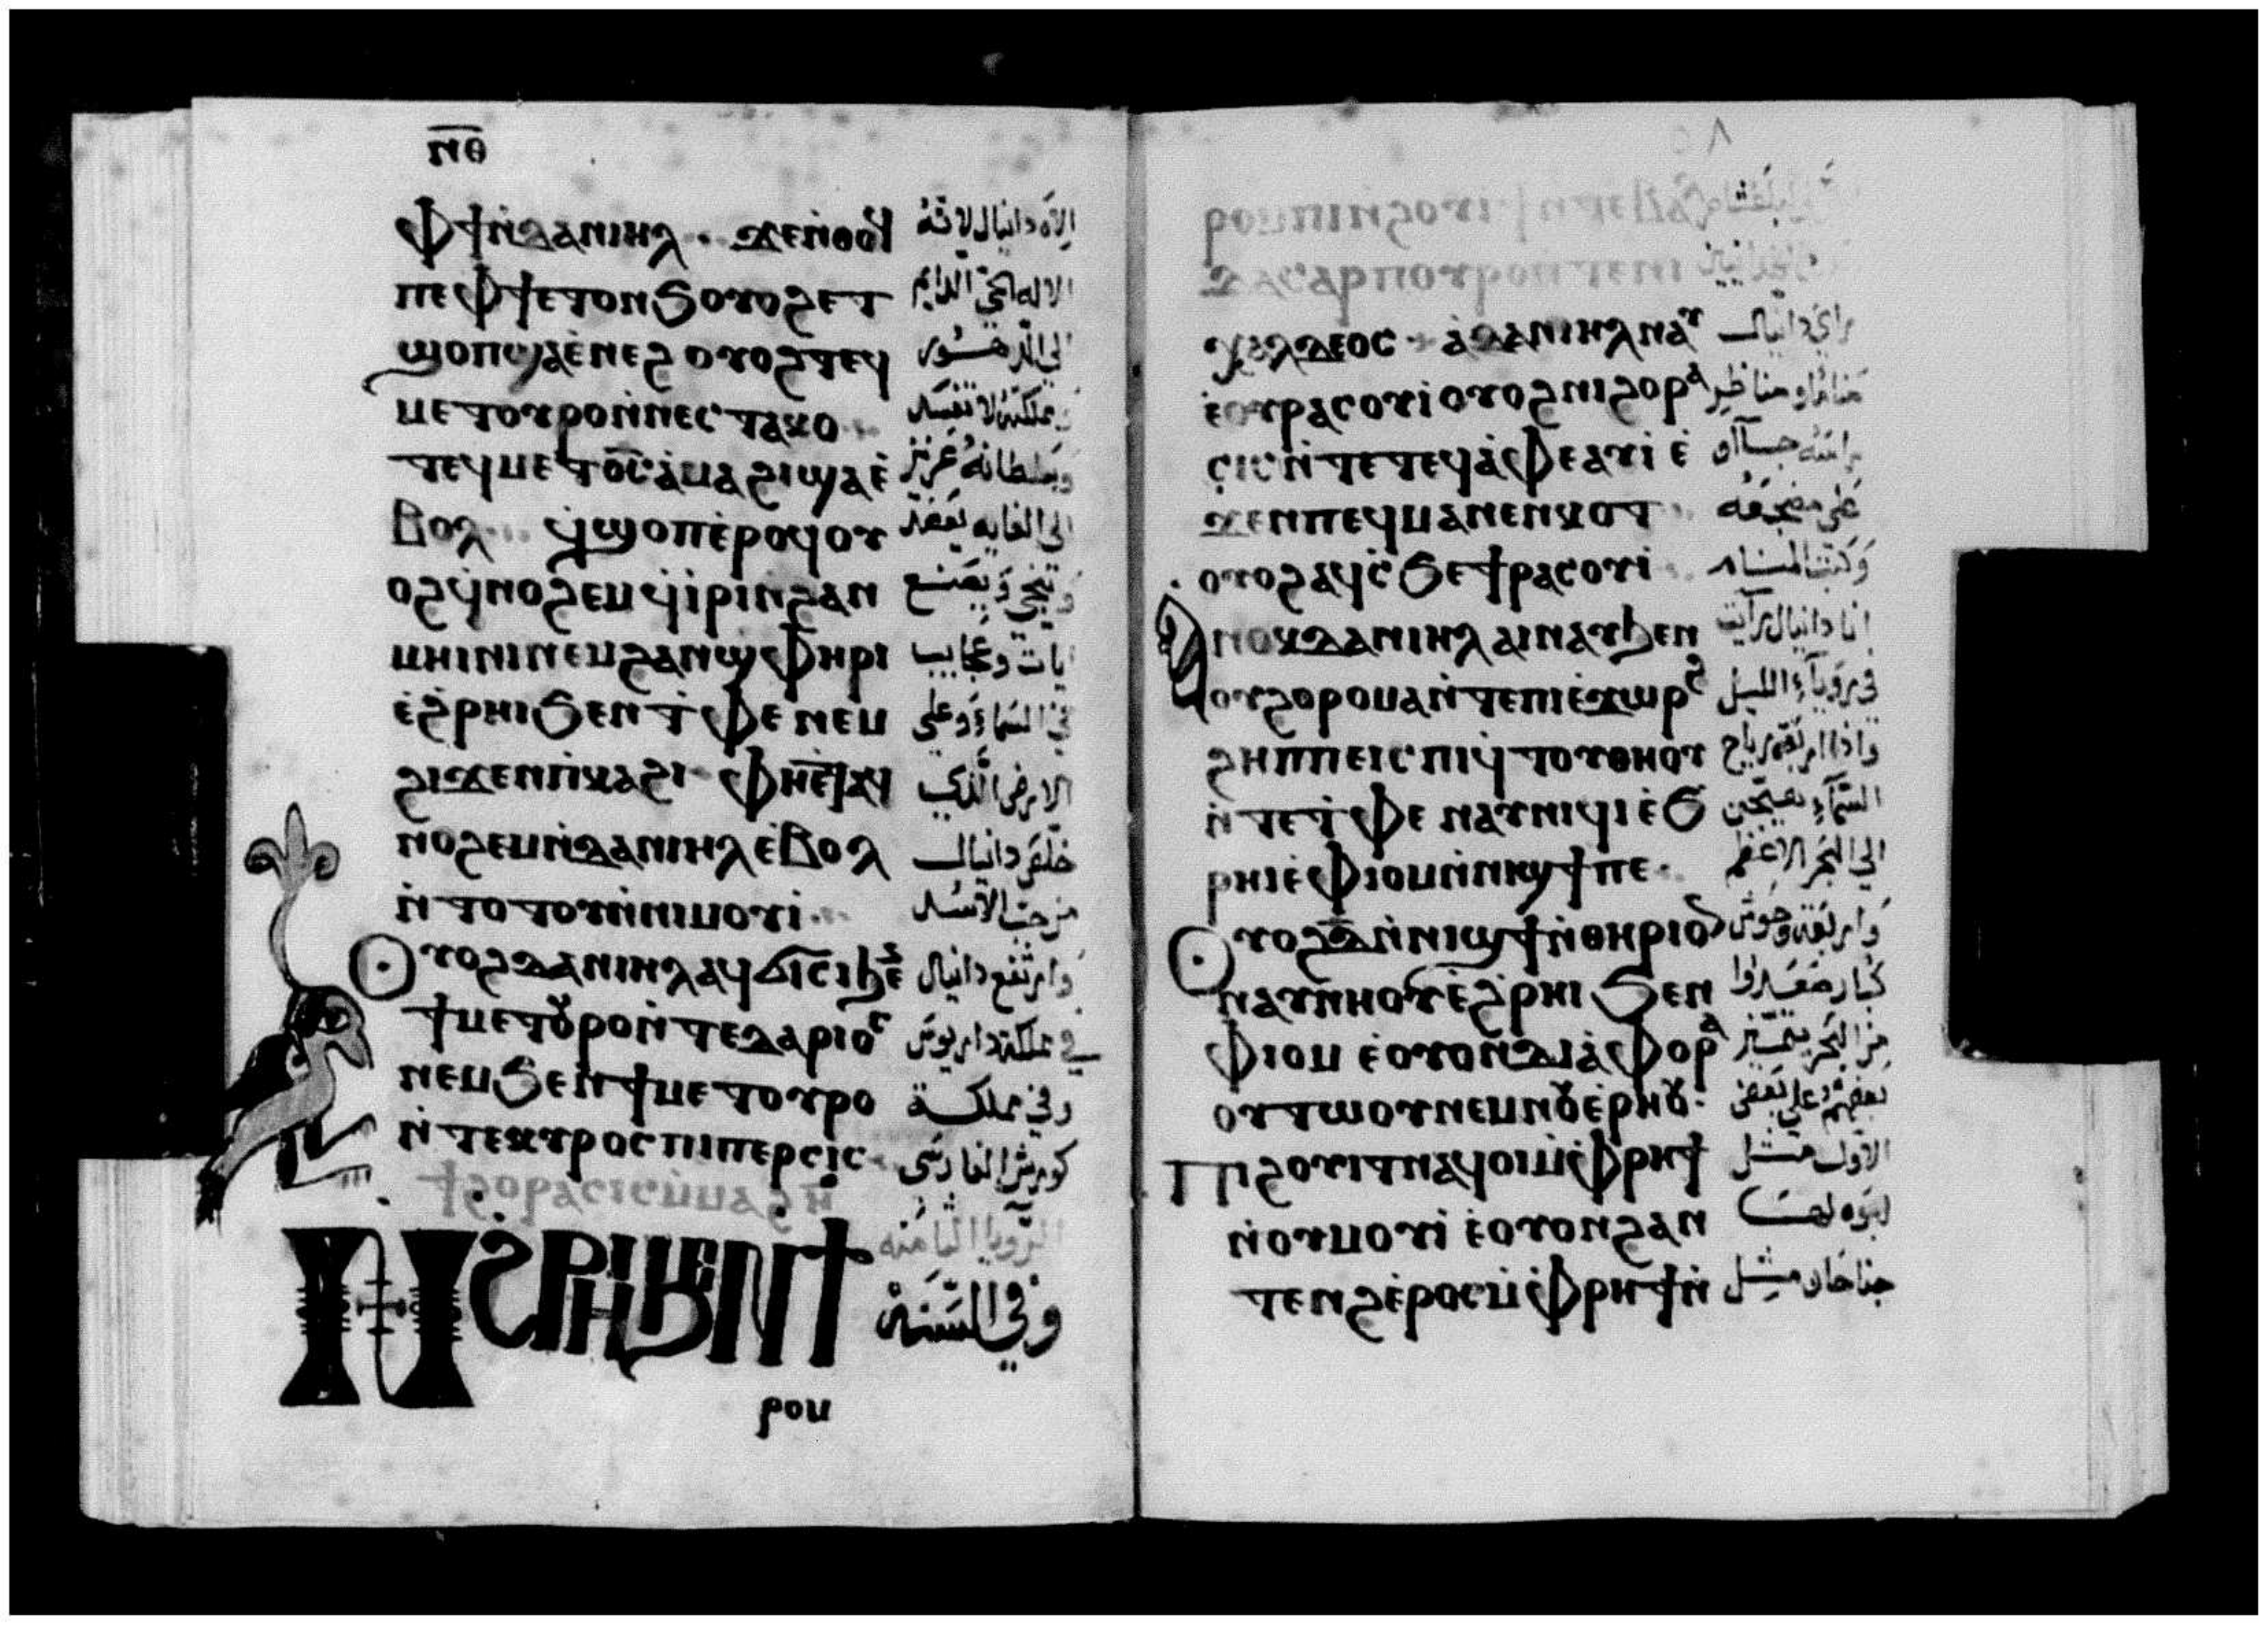 ⲛ̅ⲑ̅
ⲫϯ ⲛ̀ⲇⲁⲛⲓⲏⲗ · ϫⲉ ⲛ̀ⲑⲟϥ الاه دانيال لانه
ⲡⲉ ⲫϯ ⲉⲧⲟⲛϧ ⲟⲩⲟϩ ⲉⲧ الاله الحي الدايم
ϣⲟⲡ ϣⲁ ⲉ̀ⲛⲉϩ ⲟⲩⲟϩ ⲧⲉϥ
ⲙⲉⲧⲟⲩⲣⲟ ⲛ̀ⲛⲉⲥⲧⲁⲕⲟ مملكته لا تفسد
ⲧⲉϥⲙⲉⲧⲟ̅ⲥ̅ ⲁ̀ⲙⲁϩⲓ ϣⲁ ⲉ̀ وسلطانه عزيز
ⲃⲟⲗ · ϥ̀ϣⲟⲡ ⲉ̀ⲣⲟϥ ⲟⲩ الي الغايه يعضد
ⲟϩ ϥ̀ⲛⲟϩⲉⲙ ϥ̀ⲓⲣⲓ ⲛ̀ϩⲁⲛ وينجي ويصنع
ⲙⲏⲓⲛⲓ ⲛⲉⲙ ϩⲁⲛϣⲫⲏⲣⲓ ايات وعجايب
ⲉ̀ϩⲣⲏⲓ ϧⲉⲛ ⲧ̀ⲫⲉ ⲛⲉⲙ في السماء وعلي
ϩⲓϫⲉⲛ ⲡ̀ⲕⲁϩⲓ · ⲫⲏ ⲉ̀ⲧⲁϥ الارض الذي
ⲛⲟϩⲉⲙ ⲛ̀ⲇⲁⲛⲓⲏⲗ ⲉ̀ⲃⲟⲗ خلص دانيال
ⲛ̀ⲧⲟⲧⲟⲩ ⲛ̀ⲛⲓⲙⲟⲩⲓ ·
ⲟⲩⲟϩ ⲇⲁⲛⲓⲏⲗ ⲁϥϭⲓⲥⲓ ϧⲉ وارتفع دانيال
ϯⲙⲉⲧⲟⲩⲣⲟ ⲛ̀ⲧⲉ ⲇⲁⲣⲓⲟⲥ في مملكة داريوس
ⲛⲉⲙ ϧⲉⲛ ϯⲙⲉⲧⲟⲩⲣⲟ وفي مملكة
ⲛ̀ⲧⲉ ⲕⲩⲣⲟⲥ ⲡⲓⲡⲉⲣⲥⲓⲥ كورش الفارسي
ϯϩⲟⲣⲁⲥⲓⲥ ⲙ̀ⲙⲁϩ ⲏ̅ الرويا الثامنه
ⲛ̀ϩⲣⲏⲓ ϧⲉⲛ ϯ وفي السنه
ⲣⲟⲙ
ⲣⲟⲙⲡⲓ ⲛ̀ϩⲟⲩⲓϯ
ⲭⲁⲗⲇⲉⲟⲥ · ⲁ̀ ⲇⲁⲛⲓⲏⲗ ⲛⲁⲩ راي دانيال
ⲉ̀ⲟⲩⲣⲁⲥⲟⲩⲓ ⲟⲩⲟϩ ⲛⲓϩⲟⲣⲁ مناما ومناظر
ⲥⲓⲥ ⲛ̀ⲧⲉ ⲧⲉϥⲁ̀ⲫⲉ ⲁⲩⲓ̀ ⲉ̀
ϫⲉⲛ ⲡⲉϥⲙⲁⲛⲉⲛⲕⲟⲧ علي مضجعه
ⲟⲩⲟϩ ⲁϥⲥ̀ϧⲉ ϯⲣⲁⲥⲟⲩⲓ وكتب المنام
ⲁⲛⲟⲕ ⲇⲁⲛⲓⲏⲗ ⲁⲓⲛⲁⲩ ϧⲉⲛ انا دانيال رايت
ⲟⲩϩⲟⲣⲟⲙⲁ ⲛ̀ⲧⲉ ⲡⲓⲉ̀ϫⲱⲣϩ في رويا الليل
ϩⲏⲡⲡⲉ ⲓⲥ ⲡⲓϥ̀ⲧⲟⲩ ⲑⲏⲟⲩ واذا اربعة رياح
ⲛ̀ⲧⲉ ⲧ̀ⲫⲉ ⲛⲁⲩⲛⲓϥⲓ ⲉ̀ϧ
ⲣⲏⲓ ⲉ̀ⲫⲓⲟⲙ ⲛ̀ⲛⲓϣϯ ⲡⲉ · الي البحر الاعظم
ⲟⲩⲟϩ ⲇ̅ ⲛ̀ⲛⲓϣϯ ⲛ̀ⲑⲏⲣⲓⲟⲛ واربعة وحوش
ⲛⲁⲩⲛⲏⲟⲩ ⲉ̀ϩⲣⲏⲓ ϧⲉⲛ كبار صعدوا
ⲫⲓⲟⲙ ⲉ̀ⲟⲩⲟⲛ ⲇⲓⲁ̀ⲫⲟⲣⲁ من البحر
ⲟⲩⲧⲱⲟⲩ ⲛⲉⲙ ⲛⲟⲩⲉ̀ⲣⲏⲟⲩ · بعضهم علي بعض
ⲡⲓϩⲟⲩⲓⲧ ⲛⲁϥⲟⲓ ⲙ̀ⲫⲣⲏϯ الاول مثل
ⲛ̀ⲟⲩⲙⲟⲩⲓ ⲉ̀ⲟⲩⲟⲛ ϩⲁⲛ لبوه لها
ⲧⲉⲛϩ ⲉ̀ⲣⲟⲥ ⲙ̀ⲫⲣⲏϯ ⲛ̀ جناحان مثل